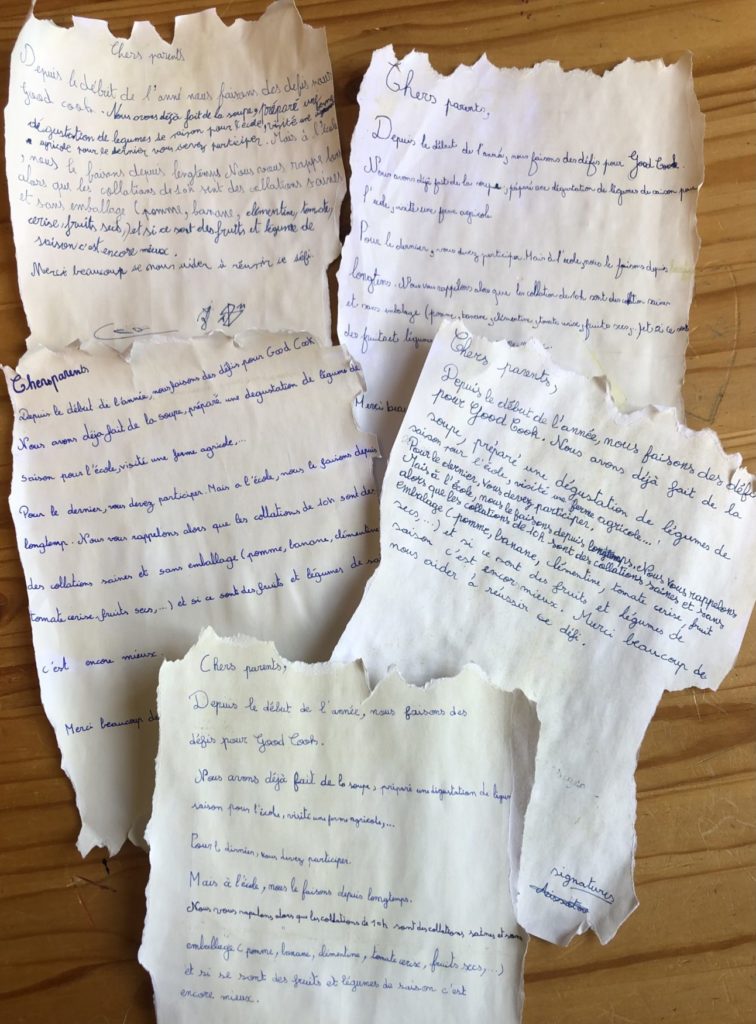 Chers parents
Depuis le début de l'anné nous faisons des defis pour
Good cook. Nous avons déjà fait de la soupe, préparé une
dégustation de legumes de saison pour l'école, visité une ferme
agricole pour le dernier vous devez participer. Mais à l'école
, nous le faisons depuis longtemps Nous vous rappelons
alors que les collations de 10h sont des collations saines
et sans emballage (pomme, banane, clémentine, tomate,
cerise, fruits secs,) et si ce sont des fruits et légume de
saison c'est encore mieux.
Merci beaucoup de nous aider à réussir ce défi.
Chers parents,
Depuis le début de l'année, nous faisons des défis pour Good Cook.
Nous avons déjà fait de la soupe, préparé une dégustation de légumes de saison pour
l'école, visité une ferme agricole
Pour le dernier, vous devez participer. Mais à l'école, nous le faisons depuis
longtems. Nous vous rappelons alors que les collation de 10h sont des saines
et sans embalage (pomme, banane, clémentine, tomate cerise, fruits secs,) et si ce sont
des fruits et légumes
Merci beau
Chers parents
Depuis le début de l'année, nous faisons des défis pour Good Cook
Nous avons déjà fait de la soupe, préparé, une degustation de légumes de
saison pour l'école, visité une ferme agricole,...
Pour le dernier, vous devez participer. Mais a l'école, nous le faisons depuis
longtemp. Nous vous rappelons alors que les collations de 10h sont des
des collations saines et sans emballage (pomme, banane, clémentine
tomate cerise, fruits secs,...) et si ce sont des fruits et légumes de sai
c'est encore mieux.
Merci beaucoup de
Chers parents,
Depuis le début de l'année, nous faisons des défis
pour Good Cook. Nous avons déjà fait de la
soupe, préparé une dégustation de légumes de
saison pour l'école, visité une ferme agricole...
Pour le dernier, vous devez participer.
Mais à l'école, nous le faisons depuis longtemps. Nous vous rappelons
alors que les collations de 10h sont des collations saines et sans
embalage (pomme, banane, clémentine, tomate cerise, fruit
secs,...) et si ce sont des fruits et légumes de
saison c'est encor mieux. Merci beaucoup de
nous aider à réussir ce défi.
signatures
Chers parents,
Depuis le début de l'année, nous faisons des
défis pour Good Cook.
Nous avons déjà fait de la soupe, préparé une dégustation de légum
saison pour l'école, visité une ferme agricole,...
Pour l dernier, vous devez participer
Mais à l'école, nous le faisons depuis longtemps.
Nous vous rapelons alors que les collations de 10h sont des collations saines et sans
emballage (pomme, banane, clémentine, tomate cerise, fruits secs,...)
et si se sont des fruits et légumes de saison c'est
encore mieux.